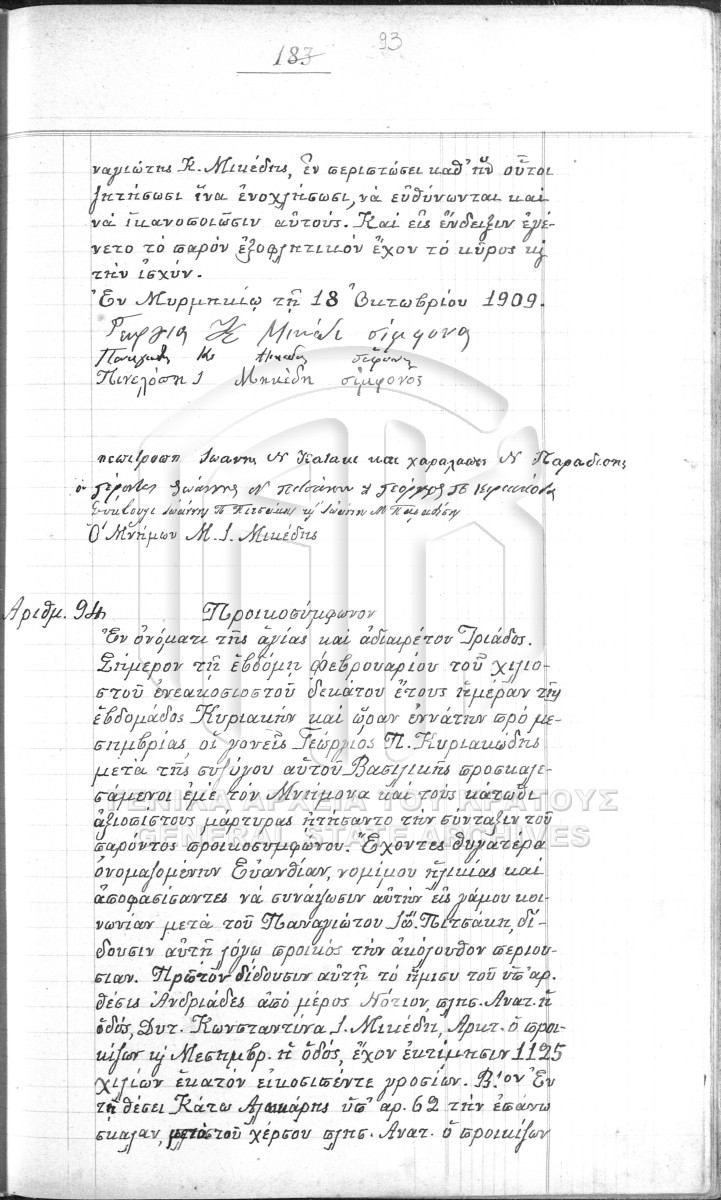 183 93
ναγιώτης Κ. Μικέδης, ἐν περιστώσει καθ' ἥν οὗτοι
ζητήσωσι ἵνα ἐνοχλήσωσι, νὰ εὐθύνωνται καὶ
νὰ ἱκανοποιῶσιν αὐτούς. Καὶ εἰς ἔνδειξιν ἐγέ-
νετο τὸ παρόν ἐξοφλητικόν ἔχον τὸ κῦρος κὶ
τὴν ἰσχύν.
Ἐν Μυρμηκίῳ τῇ 18 Ὀκτωβρίου 1909.
Γεωργία Κ Μικέδι σίμφονα
Παναγιωτης Κ. Μικεδης σιμφονις
Πινελόπη Ι Μηκέδη σίμφονος
η επιτροπη Ιωανης Ν Καlακι και χαραλαπις Ν Παραδισης
ο γέροντες Ιωάννης Ν πιτσάκη & Γεόργης Π. Κιριακόδις
Σύνβουλι Ιωάννης Π Πιτσάκης κὶ Ιωάνη Μ Παραδίση
Ὁ Μνήμων Μ. Ι. Μικέδης
Ἀριθμ. 94 Προικοσύμφωνον
Ἐν ὀνόματι τῆς ἁγίας καὶ ἀδιαιρέτου Τριάδος.
Σήμερον τῇ ἑβδόμῃ Φεβρουαρίου τοῦ χιλιο-
στοῦ ἐνεακοσιοστοῦ δεκάτου ἔτους ἡμέραν τῆς
ἑβδομάδος Κυριακήν καὶ ὥραν ἐννάτην πρό με-
σημβρίας, οἱ γονεῖς Γεώργιος Π. Κυριακώδης
μετὰ τῆς συζύγου αὐτοῦ Βασιλικῆς προσκαλε-
σάμενοι ἐμὲ τόν Μνήμονα καὶ τοὺς κάτωθι
ἀξιοπίστους μάρτυρας ἠτήσαντο τὴν σύνταξιν τοῦ
παρόντος προικοσυμφώνου. Ἔχοντες θυγατέρα
ὀνομαζομένην Εὐανθίαν, νομίμου ἡλικίας καὶ
ἀποφασίσαντες νὰ συνάψωσιν αὐτήν εἰς γάμου κοι-
νωνίαν μετὰ τοῦ Παναγιώτου Ἰω. Πιτσάκη, δί-
δουσιν αὐτῇ λόγῳ προικὸς τὴν ἀκόλουθον περιου-
σιαν. Πρῶτον δίδουσιν αὐτῇ τό ἥμισυ τοῦ ὑπ' αρ.
θέσις Ἀνδριάδες ἀπό μέρος Νότιον, πλησ. Ανατ. ἡ
ὁδός, Δυτ. Κωνσταντίνα Ι. Μικέδη, Αρκτ. ὁ προι-
κίζων κὶ Μεσημβρ. ἡ ὁδός, ἔχον ἐκτίμησιν 1125
χιλίων ἑκατόν εἰκοσιπέντε γροσίων. Β.' ον Ἐν
τῇ θέσει Κάτω Αλωκάρης ὑπ' αρ. 62 τὴν ἐπάνω
σκαλαν, μετὰ τοῦ χέρσου πλησ. Ανατ. ὁ προικίζων
ΓΕΝΙΚΑ ΑΡΧΕΙΑ ΤΟΥ ΚΡΑΤΟΥΣ
GENERAL STATE ARCHIVES